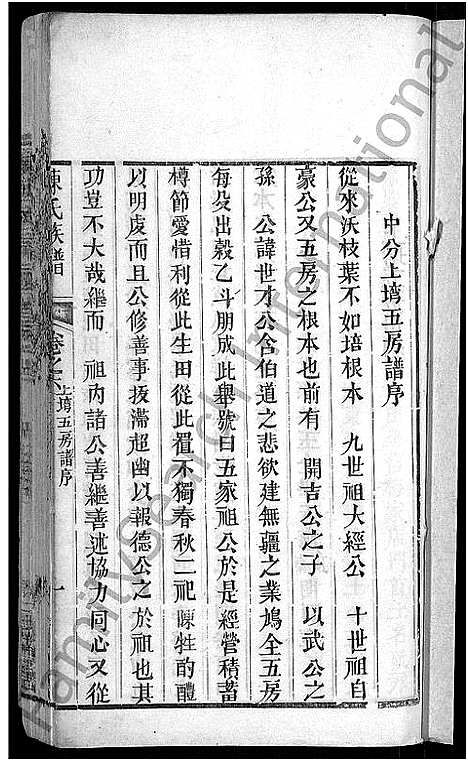 中分上塆五房譜序
從來沃枝葉不如培根本 九世祖大經公 十世祖自
豪公又五房之根本也前有 開吉公之子 以武公之
孫 公諱世才公含伯道之悲欲建無疆之業鳩全五房
每歩出穀乙斗朋成此舉號曰五家祖公於是經營積蓄
樽節愛惜利從此生田從此置不獨春秋二祀陳牲酌醴
以明虔而且公修善事拔滯超幽以報德公之於祖也其
功豈不大哉繼而 祖丙諸公善繼善述協力同心又從
陳氏族譜 卷之 上塆五房譜序 一
familysearch International